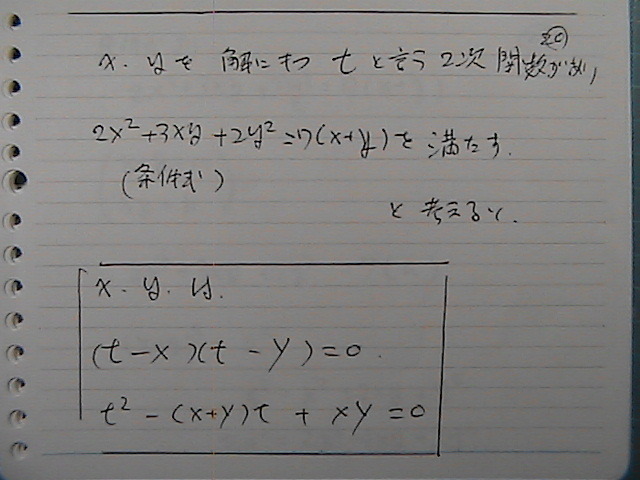 x. yを 解にもつ tと言う2次関数があり,
2x²+3xy+2y²=7(x+y)を満たす.
(条件式)
と考えると.
x. y. y.
(t-x)(t-y)=0.
t²-(x+y)t + xy=0